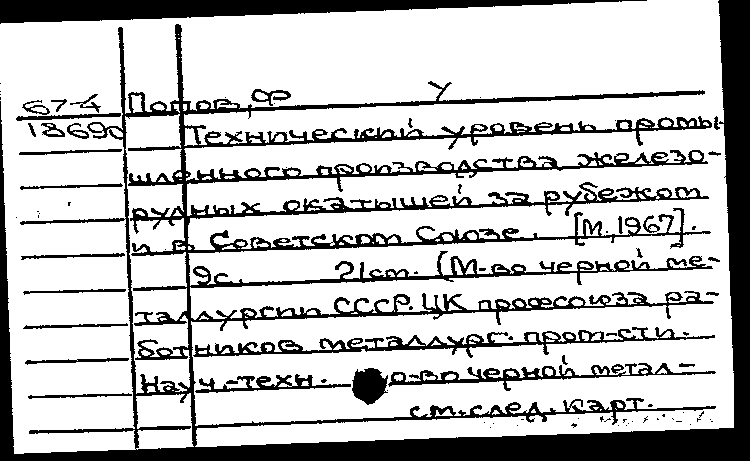 67-4 Попов, Ф У
13690 Технический уровень промы-
шленного производства железо-
рудных окатышей за рубежом
и в Советском Союзе. [М., 1967].
9с. 21см. (М-во черной ме-
таллургии СССР. ЦК профсоюза ра-
ботников металлург. пром-сти.
Науч.-техн. о-во черной метал-
см. след. карт.